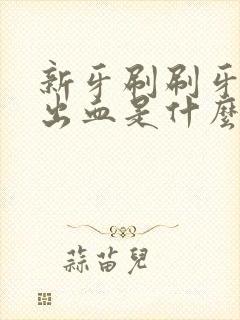 新牙刷刷牙
出血是什麼
蒜苗兒